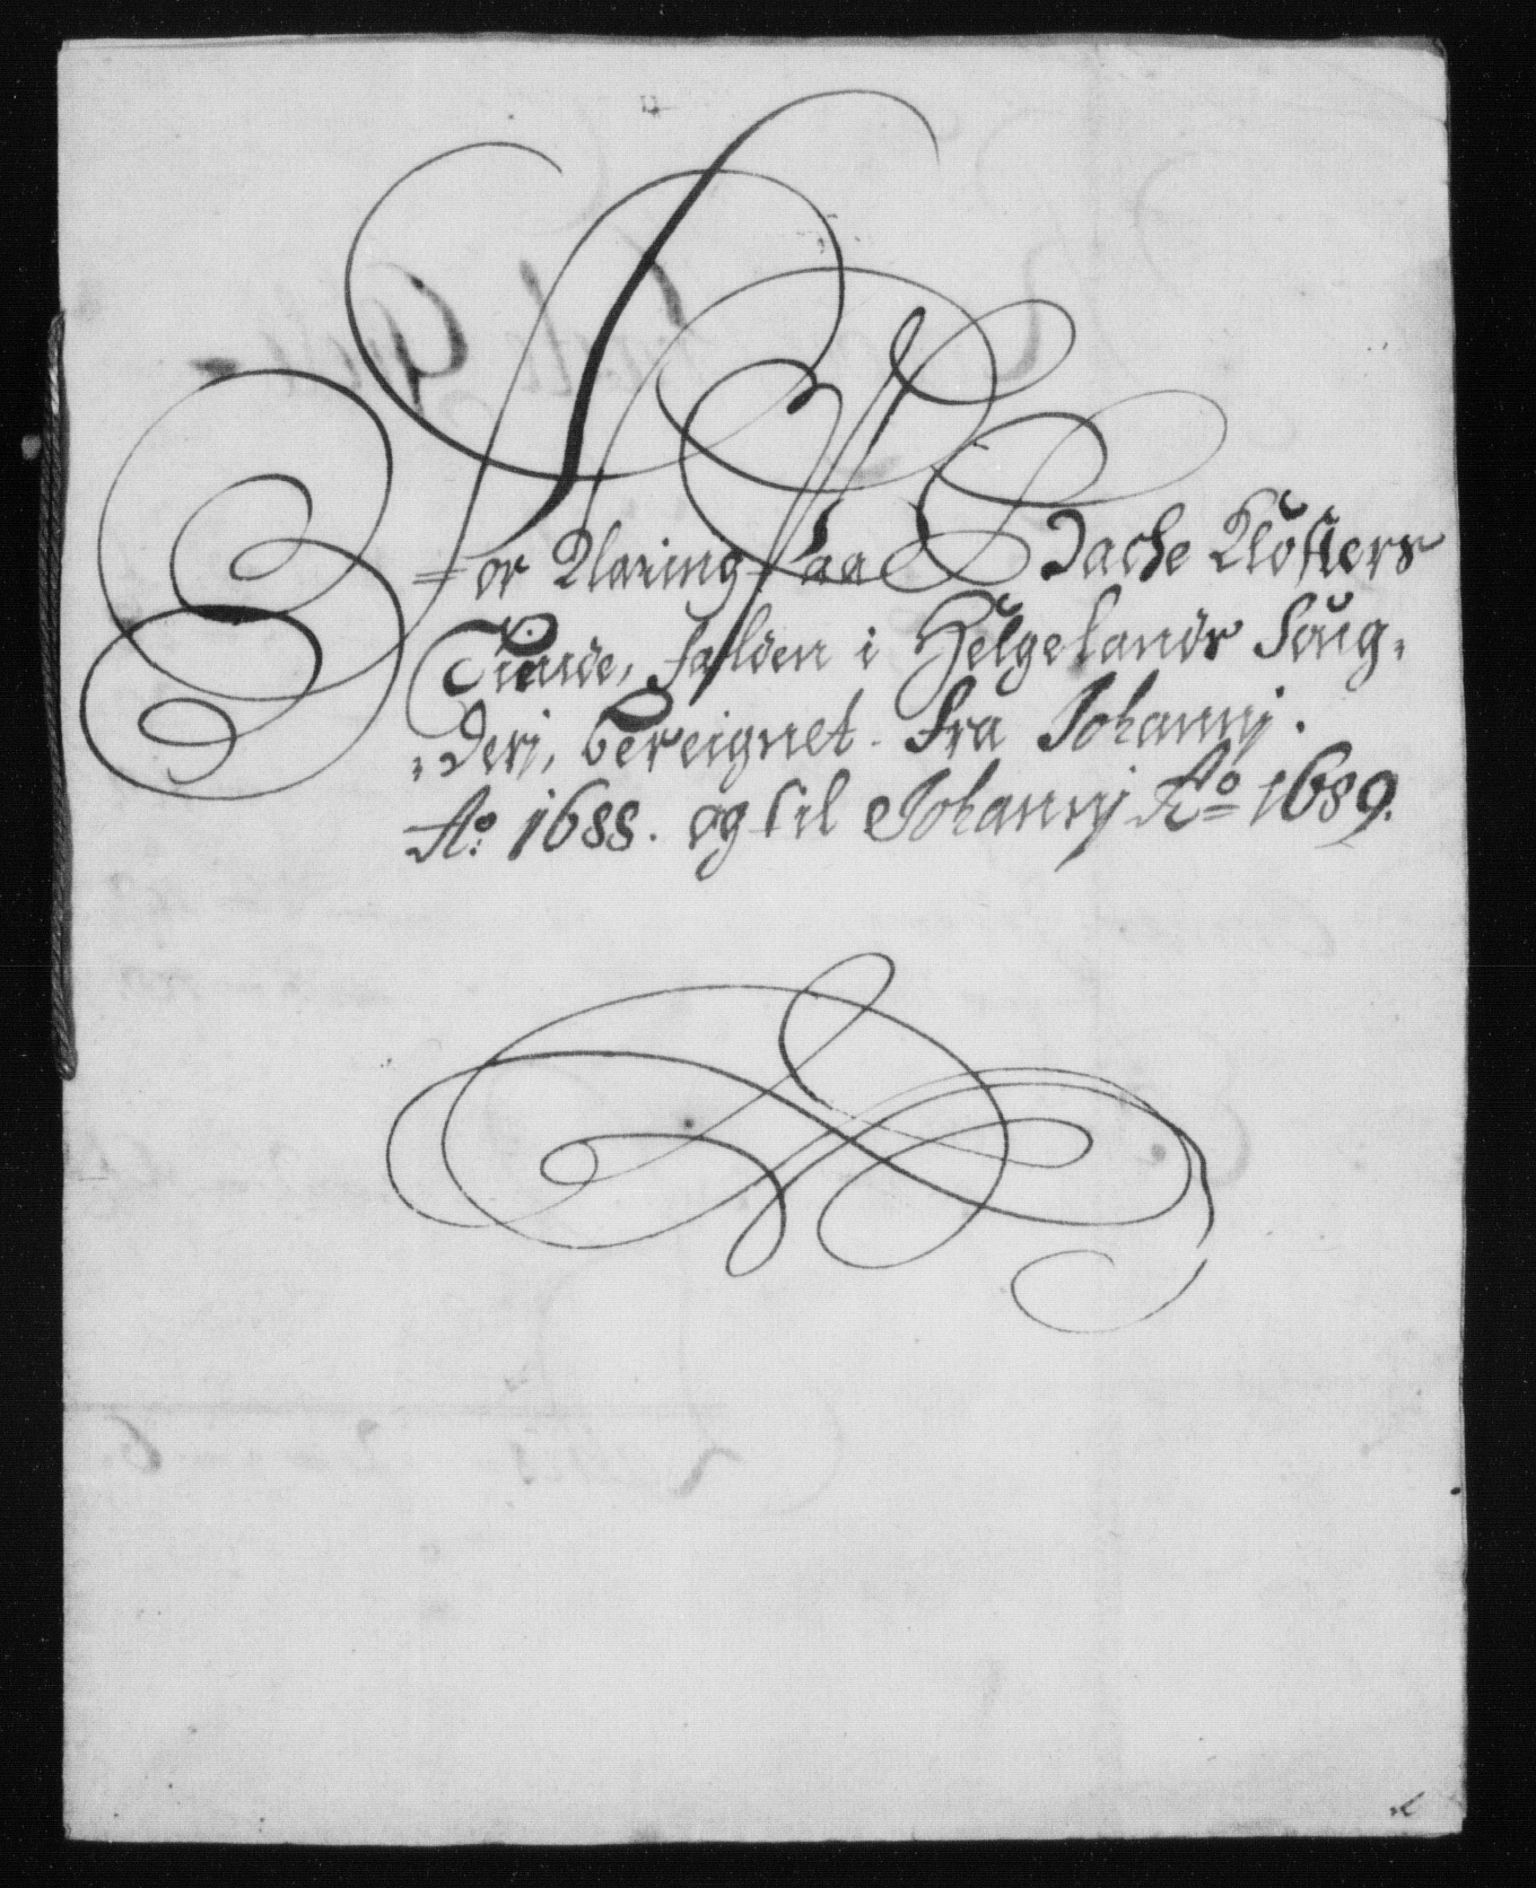 For Klaring Paa Backe Klosters
Tiende, falden i Helgelands foug,
,derj, bereignet fra Johannj.
Ao. 1688. og til Johannj Ao 1689.